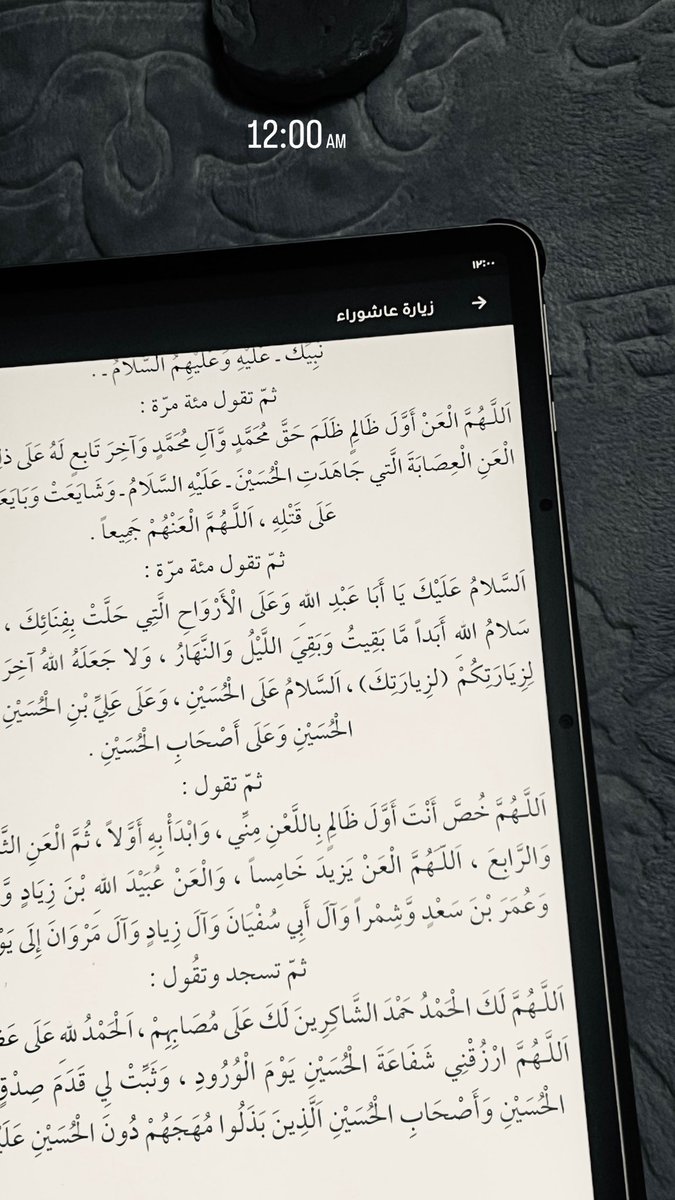 12:00 AM
١٢:٠٠
زيارة عاشوراء →
نَبِيِّكَ ـ عَلَيْهِ وَعَلَيْهِمُ السَّلامُ ـ .
ثمّ تقول مئة مرّة :
اَللَّـهُمَّ الْعَنْ أَوَّلَ ظَالِمٍ ظَلَمَ حَقَّ مُحَمَّدٍ وَّآلِ مُحَمَّدٍ وَآخِرَ تَابِعٍ لَهُ عَلَى
الْعَنِ الْعِصَابَةَ الَّتي جَاهَدَتِ الْحُسَيْنَ ـ عَلَيْهِ السَّلامُ ـ وَشَايَعَتْ
عَلَى قَتْلِهِ ، اَللَّـهُمَّ الْعَنْهُمْ جَمِيعاً .
ثمّ تقول مئة مرّة :
اَلسَّلامُ عَلَيْكَ يَا أَبَا عَبْدِ اللهِ وَعَلَى الْأَرْوَاحِ الَّتِي حَلَّتْ بِفِنَائِكَ ،
سَلامُ اللهِ أَبَداً مَّا بَقِيتُ وَبَقِيَ اللَّيْلُ وَالنَّهَارُ ، وَلا جَعَلَهُ اللهُ آخِرَ
لِزِيَارَتِكُمْ (لزِيارَتِكَ) ، اَلسَّلامُ عَلَى الْحُسَيْنِ ، وَعَلَى عَلِيِّ بْنِ الْحُسَيْنِ
الْحُسَيْنِ وَعَلَى أَصْحَابِ الْحُسَيْنِ .
ثمّ تقول :
اَللَّـهُمَّ خُصَّ أَنْتَ أَوَّلَ ظَالِمٍ بِاللَّعْنِ مِنِّي ، وَابْدَأْ بِهِ أَوَّلاً ، ثُمَّ الْعَنِ
وَالرَّابِعَ ، اَللَّـهُمَّ الْعَنْ يَزِيدَ خَامِساً ، وَالْعَنْ عُبَيْدَ الله بْنَ زِيَادٍ
وَعُمَرَ بْنَ سَعْدٍ وَّشِمْراً وَآلَ أَبِي سُفْيَانَ وَآلَ زِيادٍ وَآلَ مَرْوَانَ إِلَى
ثمّ تسجد وتقُول :
اَللَّـهُمَّ لَكَ الْحَمْدُ حَمْدَ الشَّاكِرِينَ لَكَ عَلَى مُصَابِهِمْ ، اَلْحَمْدُ للهِ عَلَى
اَللَّـهُمَّ ارْزُقْنِي شَفَاعَةَ الْحُسَيْنِ يَوْمَ الْوُرُودِ ، وَثَبِّتْ لِي قَدَمَ صِدْقٍ
الْحُسَيْنِ وَأَصْحَابِ الْحُسَيْنِ الَّذِينَ بَذَلُوا مُهَجَهُمْ دُونَ الْحُسَيْنِ